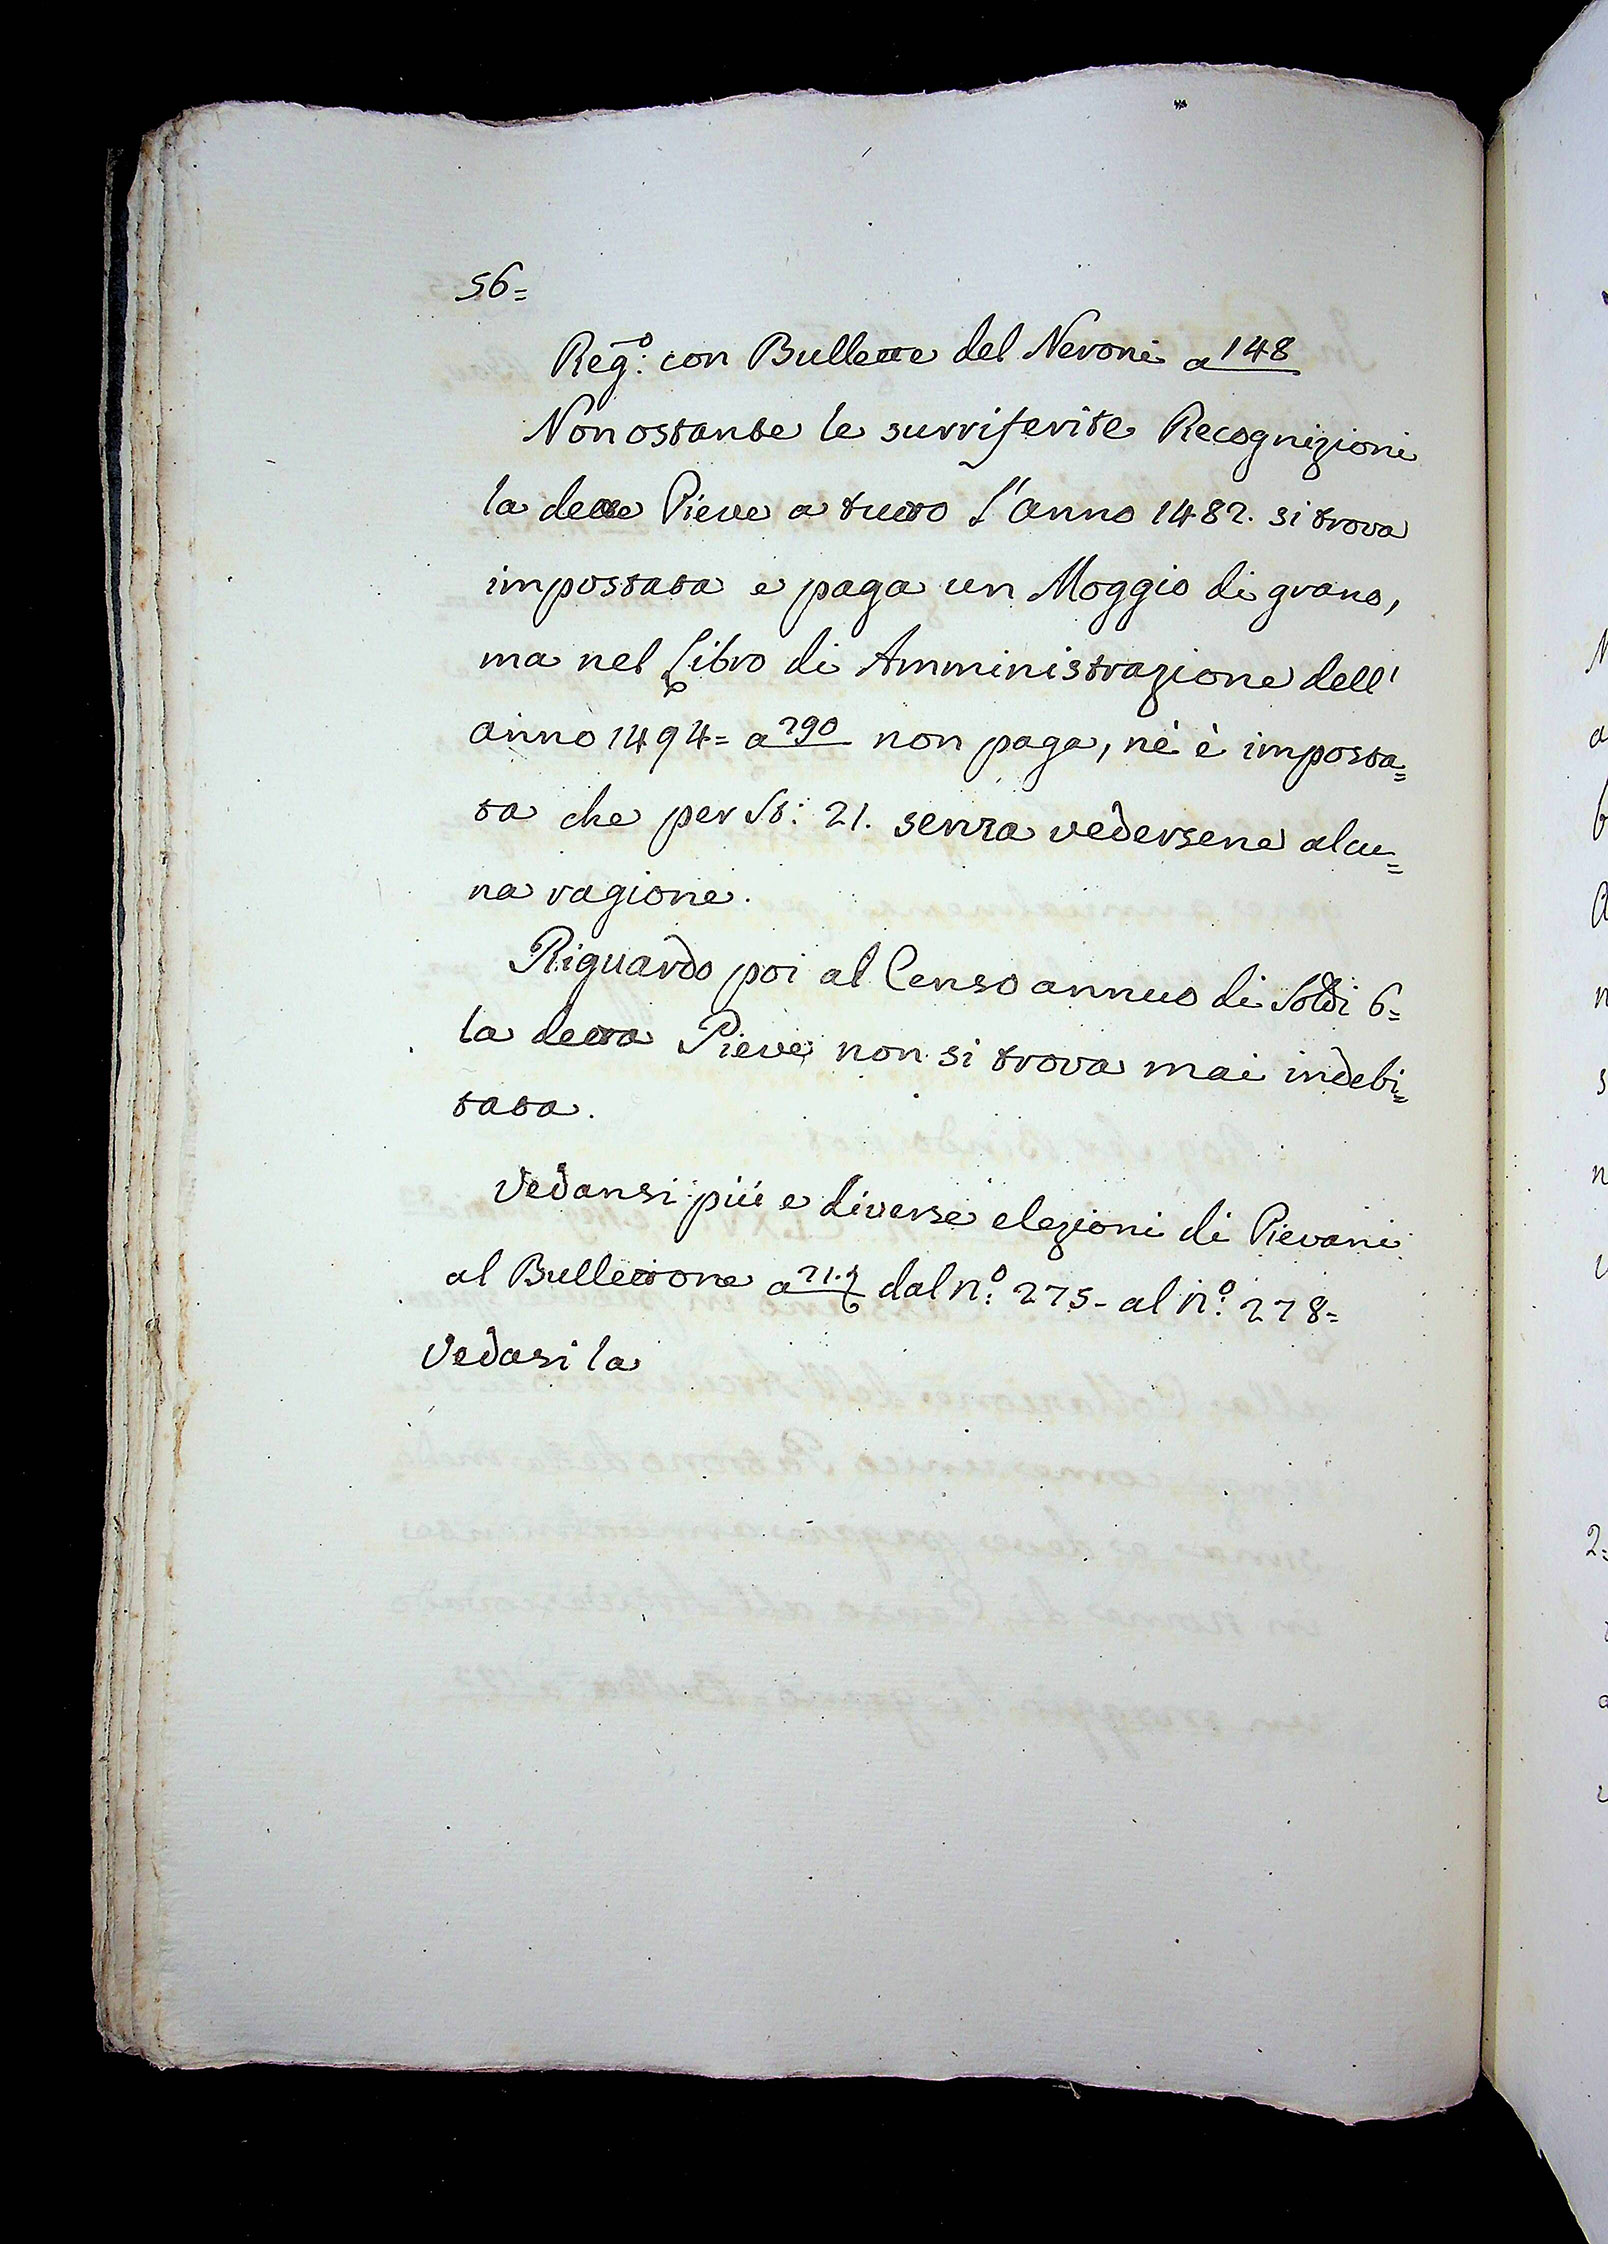 56=
Reg.º con Bullette del Neroni a 148
Nonostante le surriferite Recognizioni
la dette Pieve a tutto l'anno 1482. si trova
impostata e paga un Moggio di grano,
ma nel Libro di Amministrazione dell'
anno 1494= a 290 non paga, nè è imposta=
ta che per St: 21. senza vedersene alcu=
na ragione.
Riguardo poi al Censo annuo di Soldi 6=
la detta Pieve non si trova mai indebi=
tata.
Vedansi più e diverse elezioni di Pievani
al Bullettone a 21.9 dal n.º 275- al n.º 278=
Vedasi la